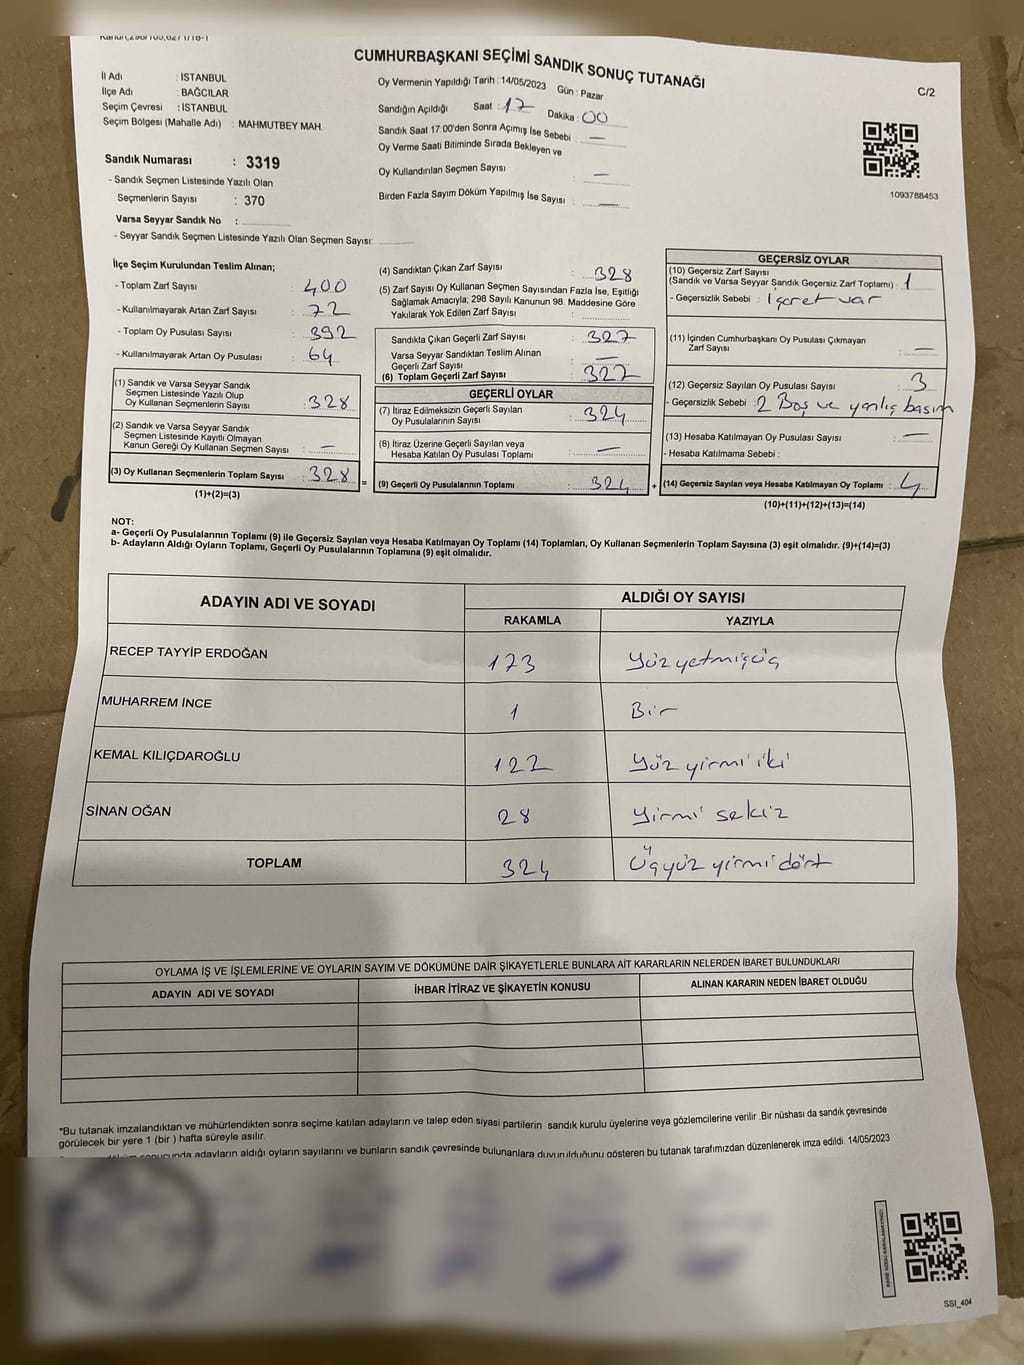 Kanun,298/105,6271/16-1
CUMHURBAŞKANI SEÇİMİ SANDIK SONUÇ TUTANAĞI
C/2
İl Adı : İSTANBUL
İlçe Adı : BAĞCILAR
Seçim Çevresi : İSTANBUL
Seçim Bölgesi (Mahalle Adı) : MAHMUTBEY MAH.
Sandık Numarası : 3319
- Sandık Seçmen Listesinde Yazılı Olan
Seçmenlerin Sayısı : 370
Varsa Seyyar Sandık No :
- Seyyar Sandık Seçmen Listesinde Yazılı Olan Seçmen Sayısı:
Oy Vermenin Yapıldığı Tarih : 14/05/2023 Gün : Pazar
Sandığın Açıldığı Saat : 17 Dakika : 00
Sandık Saat 17.00'den Sonra Açımış İse Sebebi : —
Oy Verme Saati Bitiminde Sırada Bekleyen ve
Oy Kullandırılan Seçmen Sayısı : —
Birden Fazla Sayım Döküm Yapılmış İse Sayısı : —
1093788453
İlçe Seçim Kurulundan Teslim Alınan;
- Toplam Zarf Sayısı : 400
- Kullanılmayarak Artan Zarf Sayısı : 72
- Toplam Oy Pusulası Sayısı : 392
- Kullanılmayarak Artan Oy Pusulası : 64
(1) Sandık ve Varsa Seyyar Sandık
Seçmen Listesinde Yazılı Olup
Oy Kullanan Seçmenlerin Sayısı : 328
(2) Sandık ve Varsa Seyyar Sandık
Seçmen Listesinde Kayıtlı Olmayan
Kanun Gereği Oy Kullanan Seçmen Sayısı : —
(3) Oy Kullanan Seçmenlerin Toplam Sayısı : 328 =
(1)+(2)=(3)
(4) Sandıktan Çıkan Zarf Sayısı : 328
(5) Zarf Sayısı Oy Kullanan Seçmen Sayısından Fazla İse, Eşitliği
Sağlamak Amacıyla; 298 Sayılı Kanunun 98. Maddesine Göre
Yakılarak Yok Edilen Zarf Sayısı :
Sandıkta Çıkan Geçerli Zarf Sayısı : 327
Varsa Seyyar Sandıktan Teslim Alınan
Geçerli Zarf Sayısı : —
(6) Toplam Geçerli Zarf Sayısı : 327
GEÇERLİ OYLAR
(7) İtiraz Edilmeksizin Geçerli Sayılan
Oy Pusulalarının Sayısı : 324
(8) İtiraz Üzerine Geçerli Sayılan veya
Hesaba Katılan Oy Pusulası Toplamı : —
(9) Geçerli Oy Pusulalarının Toplamı : 324 +
GEÇERSİZ OYLAR
(10) Geçersiz Zarf Sayısı
(Sandık ve Varsa Seyyar Sandık Geçersiz Zarf Toplamı) : 1
- Geçersizlik Sebebi : İşaret var
(11) İçinden Cumhurbaşkanı Oy Pusulası Çıkmayan
Zarf Sayısı : —
(12) Geçersiz Sayılan Oy Pusulası Sayısı : 3
- Geçersizlik Sebebi : 2 Boş ve yanlış basım
(13) Hesaba Katılmayan Oy Pusulası Sayısı : —
- Hesaba Katılmama Sebebi :
(14) Geçersiz Sayılan veya Hesaba Katılmayan Oy Toplamı : 4
(10)+(11)+(12)+(13)=(14)
NOT:
a- Geçerli Oy Pusulalarının Toplamı (9) ile Geçersiz Sayılan veya Hesaba Katılmayan Oy Toplamı (14) Toplamları, Oy Kullanan Seçmenlerin Toplam Sayısına (3) eşit olmalıdır. (9)+(14)=(3)
b- Adayların Aldığı Oyların Toplamı, Geçerli Oy Pusulalarının Toplamına (9) eşit olmalıdır.
ADAYIN ADI VE SOYADI ALDIĞI OY SAYISI
RAKAMLA YAZIYLA
RECEP TAYYİP ERDOĞAN 173 Yüz yetmişüç
MUHARREM İNCE 1 Bir
KEMAL KILIÇDAROĞLU 122 Yüz yirmi iki
SİNAN OĞAN 28 Yirmi sekiz
TOPLAM 324 Üçyüz yirmi dört
OYLAMA İŞ VE İŞLEMLERİNE VE OYLARIN SAYIM VE DÖKÜMÜNE DAİR ŞİKAYETLERLE BUNLARA AİT KARARLARIN NELERDEN İBARET BULUNDUKLARI
ADAYIN ADI VE SOYADI İHBAR İTİRAZ VE ŞİKAYETİN KONUSU ALINAN KARARIN NEDEN İBARET OLDUĞU
*Bu tutanak imzalandıktan ve mühürlendikten sonra seçime katılan adayların ve talep eden siyasi partilerin sandık kurulu üyelerine veya gözlemcilerine verilir .Bir nüshası da sandık çevresinde
görülecek bir yere 1 (bir ) hafta süreyle asılır.
sonucunda adayların aldığı oyların sayılarını ve bunların sandık çevresinde bulunanlara duyurulduğunu gösteren bu tutanak tarafımızdan düzenlenerek imza edildi. 14/05/2023
SSI_404